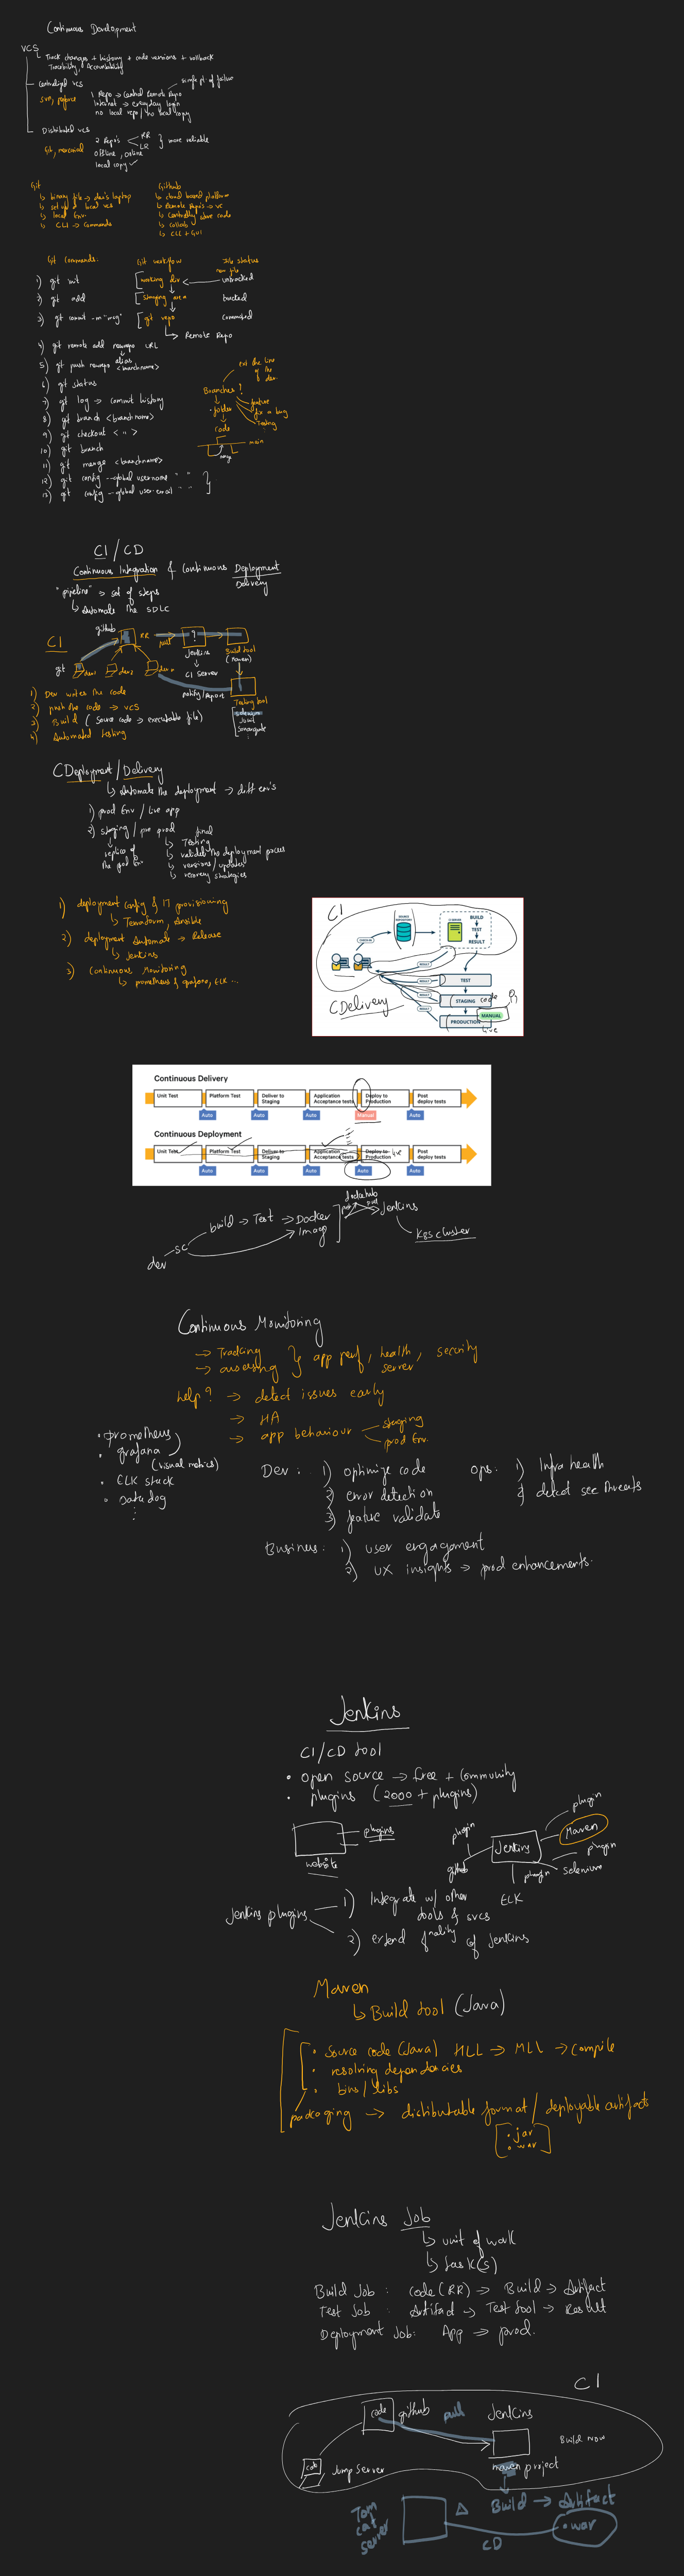 Continuous Development
VCS
Track changes + history + code versions + rollback
Tracibility, Accountability
Centralized VCS
single pt. of failure
SVN, perforce
1 Repo → Central Remote Repo
Internet → everyday login
no local repo / no local copy
Distributed VCS
Git, mercurial
2 Repo's
RR
LR
more reliable
offline, online
local copy ✓
Git
binary file → dev's laptop
set up a local vcs
local Env.
CLI → Commands
Github
cloud based platform
Remote Repo's → VC
centrally store code
collab
CLI + GUI
Git Commands:
Git workflow
File status
new file
1) git init
working dir
untracked
2) git add
staging area
tracked
3) git commit -m "msg"
git repo
committed
Remote Repo
4) git remote add newrepo URL
alias
5) git push newrepo <branchname>
6) git status
7) git log → commit history
8) git branch <branchname>
9) git checkout < " >
10) git branch
11) git merge <branchname>
12) git config --global username " "
13) git config --global user.email " "
ext the line
of the
dev.
Branches?
folder
code
feature
fix a bug
Testing
main
merge
CI / CD
Continuous Integration & Continuous Deployment
Delivery
"pipeline" → set of steps
Automate the SDLC
CI
github
RR
pull
?
Jenkins
CI Server
Build tool
(maven)
git
dev1
dev2
dev n
notify/Report
Testing tool
selenium
Junit
Sonarqube
1) Dev writes the code
2) push the code → VCS
3) Build ( Source code → executable file)
4) Automated testing
CDeployment / Delivery
Automate the deployment → diff env's
1) prod Env / live app
2) staging / pre prod
replica of
the prod Env
final
Testing
validate the deployment process
versions / updates
recovery strategies
1) deployment config & IT provisioning
Terraform, Ansible
2) deployment Automate → Release
Jenkins
3) Continuous Monitoring
prometheus & grafana, ELK ...
CI
SOURCE REPOSITORY
CI SERVER
BUILD
TEST
RESULT
CHECK IN
RESULT
RESULT
RESULT
RESULT
TEST
STAGING
code
PRODUCTION
MANUAL
live
CDelivery
Continuous Delivery
Unit Test
Platform Test
Deliver to Staging
Application Acceptance tests
Deploy to Production
Post deploy tests
Auto
Auto
Auto
Manual
Auto
Continuous Deployment
Unit Test
Platform Test
Deliver to Staging
Application Acceptance tests
Deploy to Production
live
Post deploy tests
Auto
Auto
Auto
Auto
Auto
dev
SC
build → Test → Docker
Image
dockerhub
push
pull
Jenkins
K8s cluster
Continuous Monitoring
→ Tracking
→ assessing
app perf, health, security
server
help? → detect issues early
→ HA
→ app behaviour
staging
prod Env.
• prometheus
• grafana
(visual metrics)
• ELK stack
• Datadog
Dev: 1) optimize code
2) error detection
3) feature validate
ops: 1) Infra health
2) detect sec threats
Business: 1) user engagement
2) UX insights → prod enhancements.
Jenkins
CI/CD tool
• open source → free + Community
• plugins (2000 + plugins)
plugins
website
plugin
github
Jenkins
plugin
Maven
plugin
Selenium
plugin
ELK
Jenkins plugins
1) Integrate w/ other
tools & svcs
2) extend f^nality of Jenkins
Maven
Build tool (Java)
• Source code (Java) HLL → MLL → Compile
• resolving dependencies
• bins / libs
packaging → distributable format / deployable artifacts
• jar
• war
Jenkins Job
unit of work
task(s)
Build Job : code (RR) → Build → Artifact
Test Job : Artifact → Test tool → Result
Deployment Job: App → prod.
CI
code
github
pull
Jenkins
Build now
code
Jump Server
maven project
Build → Artifact
.war
Tom
cat
server
CD